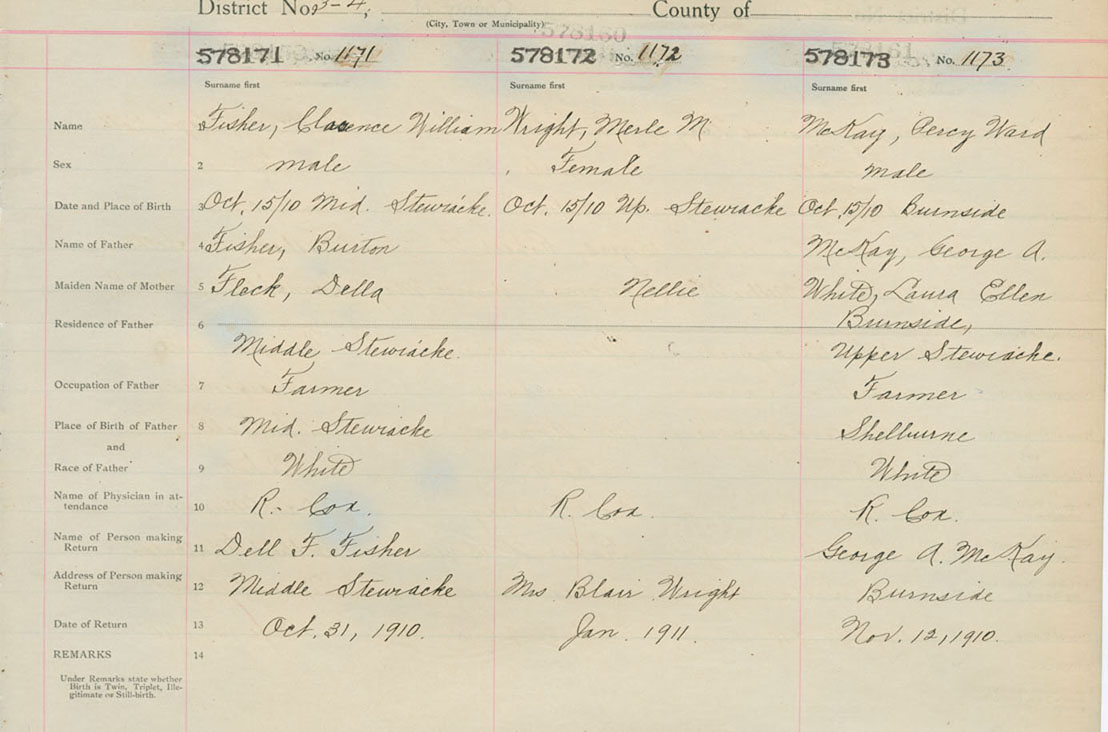 District No. 3-4, County of
(City, Town or Municipality)
578171 No. 1171 578172 No. 1172 578173 No. 1173
Surname first Surname first Surname first
Name 1 Fisher, Clarence William Wright, Merle M McKay, Percy Ward
Sex 2 male Female male
Date and Place of Birth 3 Oct. 15/10 Mid. Stewiacke. Oct. 15/10 Up. Stewiacke Oct. 15/10 Burnside
Name of Father 4 Fisher, Burton McKay, George A.
Maiden Name of Mother 5 Flock, Della Nellie White, Laura Ellen
Residence of Father 6 Burnside,
Middle Stewiacke. Upper Stewiacke.
Occupation of Father 7 Farmer Farmer
Place of Birth of Father 8 Mid. Stewiacke Shelburne
and
Race of Father 9 White White
Name of Physician in at-
tendance 10 R. Cox. R. Cox. R. Cox.
Name of Person making
Return 11 Dell F. Fisher George A. McKay.
Address of Person making
Return 12 Middle Stewiacke Mrs Blair Wright Burnside
Date of Return 13 Oct. 31, 1910. Jan. 1911. Nov. 12, 1910.
REMARKS 14
Under Remarks state whether
Birth is Twin, Triplet, Ille-
gitimate or Still-birth.